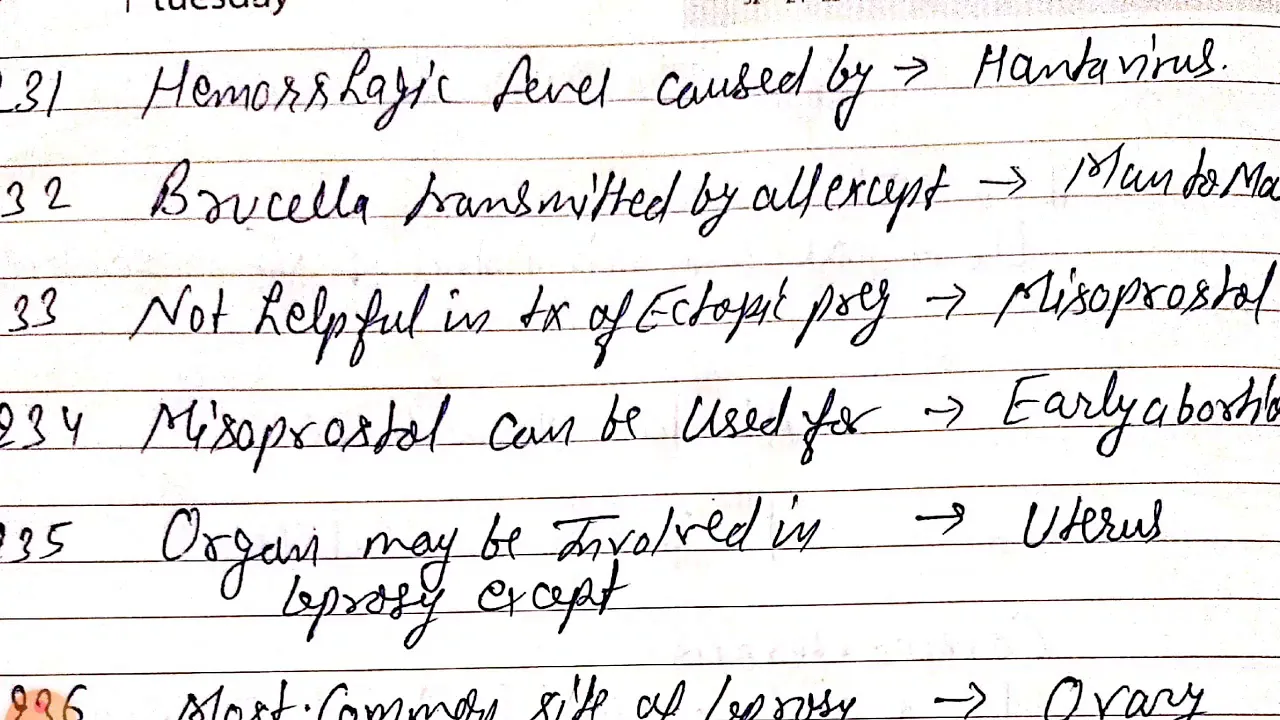 tuesday
231 Hemorrhagic fever caused by → Hantavirus.
32 Brucella transmitted by all except → Man to Ma
33 Not helpful in tx of Ectopic preg → Misoprostol
234 Misoprostol can be used for → Early abortio
235 Organ may be Involved in → Uterus
leprosy except
236 Most Common site of leprosy → Ovary